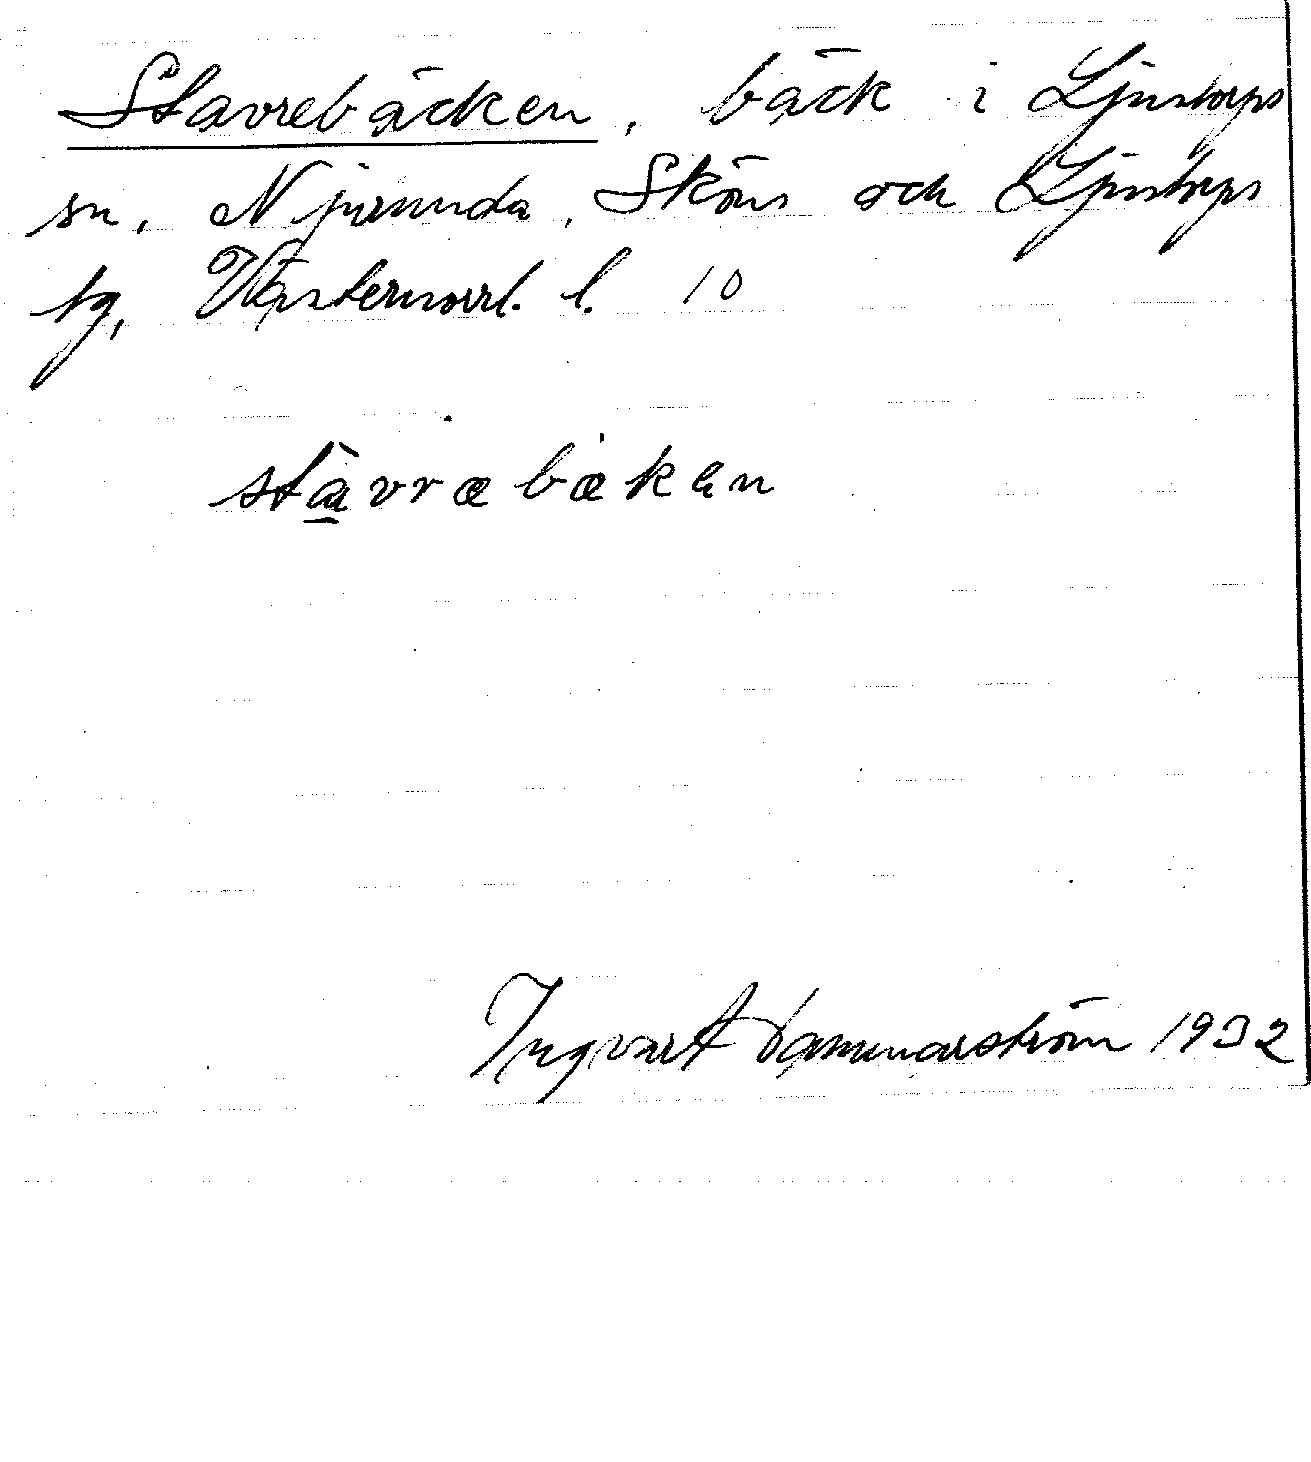 Stavrebäcken, bäck i Ljustorps
sn, Njurunda, Sköns och Ljustorps
tg, Västernorrl. l. 10
stàvræbækən
Ingvart Hammarström 1932